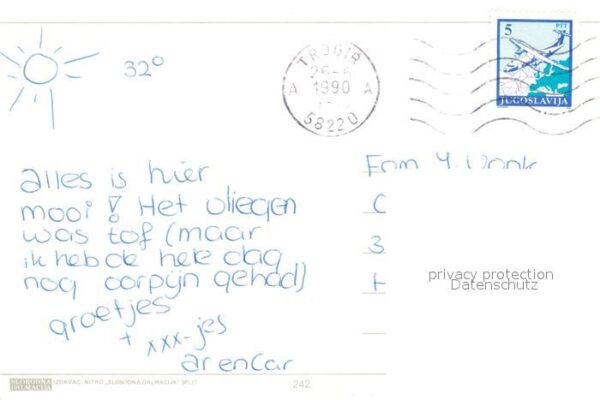 32°
TROGIR
26-6
A 1990 A
58220
5 PTT
JUGOSLAVIJA
alles is hier
mooi! Het vliegen
was tof (maar
ik heb de hele dag
nog oorpijn gehad)
groetjes
+ xxx-jes
Fam Y.
privacy protection
Datenschutz
SLOBODNA DALMACIJA IZDAVAČ: NIŠRO „SLOBODNA DALMACIJA" SPLIT
242